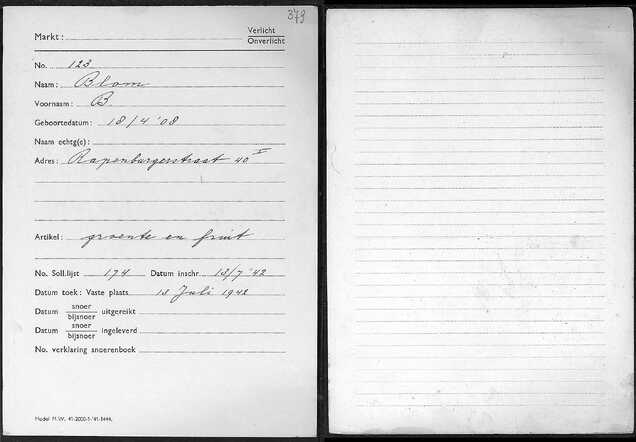 373
Markt :
Verlicht
Onverlicht
No. 123
Naam : Blom
Voornaam : B.
Geboortedatum : 18/4 '08
Naam echtg(e) :
Adres : Rapenburgerstraat 40 I
Artikel : groente en fruit
No. Soll.lijst 174 Datum inschr. 13/7 '42
Datum toek : Vaste plaats 13 Juli 1942
Datum snoer
bijsnoer uitgereikt
Datum snoer
bijsnoer ingeleverd
No. verklaring snoerenboek
Model M.W. 41-2000-5-'41-1444.